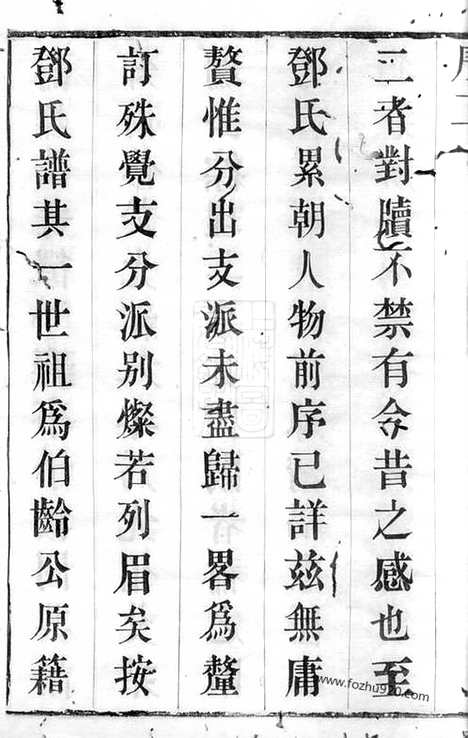 二者對牘不禁有今昔之感也至
鄧氏累朝人物前序已詳茲無庸
贅惟分出支派未盡歸一畧爲釐
訂殊覺支分派别燦若列眉矣按
鄧氏譜其一世祖爲伯齡公原籍
www.fozhu920.com